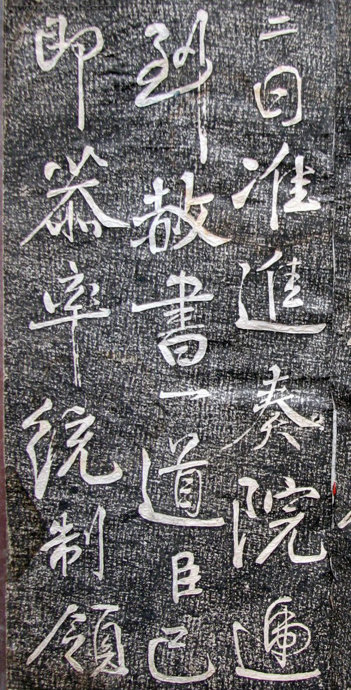 二日准進奏院遞
到赦書一道臣已
即恭率統制領